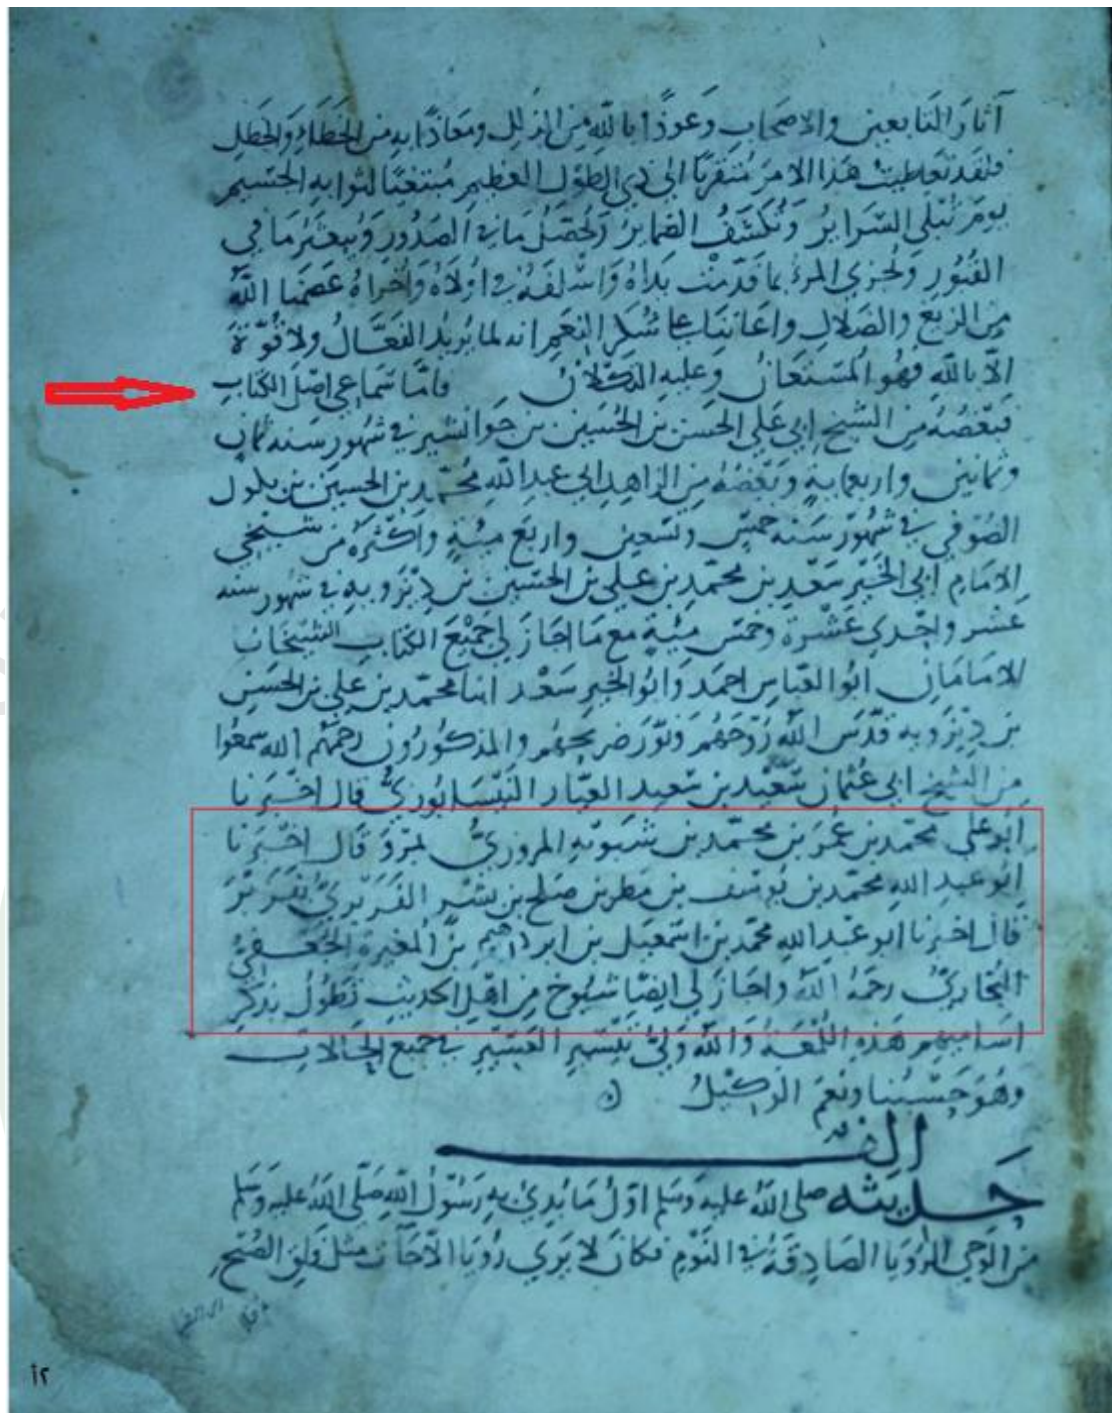 آثار التابعين والاصحاب وعوذًا بالله من الزلل ومعاذًا به من الخطاء والخطل
فلقد تعاطيت هذا الامر متقربًا الى ذي الطول العظيم مبتغيًا لثوابه الجسيم
يوم تبلى السراير وتكشف الضماير وتحصل ما في الصدور ويبعثر ما في
القبور ويجزي المرء بما قدمت يداه واسلفه في اولاه واخراه عصمنا الله
من الزيغ والضلال واعاننا علي شكر النعم انه لما يريد الفعال ولا قوة
الا بالله فهو المستعان وعليه التكلان فاما سماعي اصل الكتاب
فبعضه من الشيخ ابي علي الحسن بن الحسين بن جوانشير في شهور سنه ثمان
وثمانين واربعماية وبعضه من الزاهد ابي عبد الله محمد بن الحسين بن بلول
الصوفي في شهور سنه خمس وتسعين واربع مئة واكثره من شيخي
الامام ابي الخير سعد بن محمد بن علي بن الحسين بن ديزويه في شهور سنه
عشر واحدي عشرة وخمس مئة مع ما اجاز لي جميع الكتاب الشيخان
الامامان ابو العباس احمد وابو الخير سعد ابنا محمد بن علي بن الحسن
بن ديزويه قدس الله روحهم ونور ضريحهم والمذكورون رحمهم الله سمعوا
من الشيخ ابي عثمان سعيد بن سعيد العيار النيسابوري قال اخبرنا
ابو علي محمد بن عمر بن محمد بن شبويه المروزي بمرو قال اخبرنا
ابو عبد الله محمد بن يوسف بن مطر بن صلح بن بشر الفربري بفربر
قال اخبرنا ابو عبد الله محمد بن اسمعيل بن ابرهيم بن المغيرة الجعفي
البخاري رحمه الله واجاز لي ايضا شيوخ من اهل الحديث تطول بذكر
اساميهم هذه اللمعة والله ولي تيسير العسير في جميع الحالات
وهو حسبنا ونعم الوكيل
الف
حديثه صلى الله عليه وسلم اول ما بدئ به رسول الله صلى الله عليه وسلم
من الوحي الرؤيا الصادقة في النوم فكان لا يري رؤيا الا جات مثل فلق الصبح
٢أ